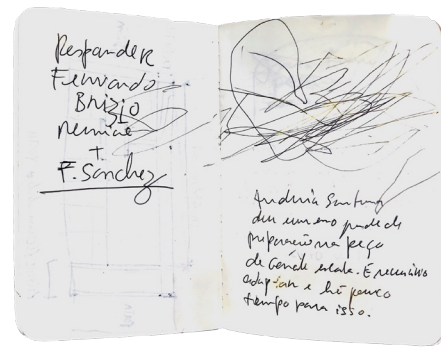 Responder
Fernando
Brizio
+
F. Sanchez
Andreia Santana
deu um erro
preparação na peça
de grande escala. É necessário
adaptar e há pouco
tempo para isso.